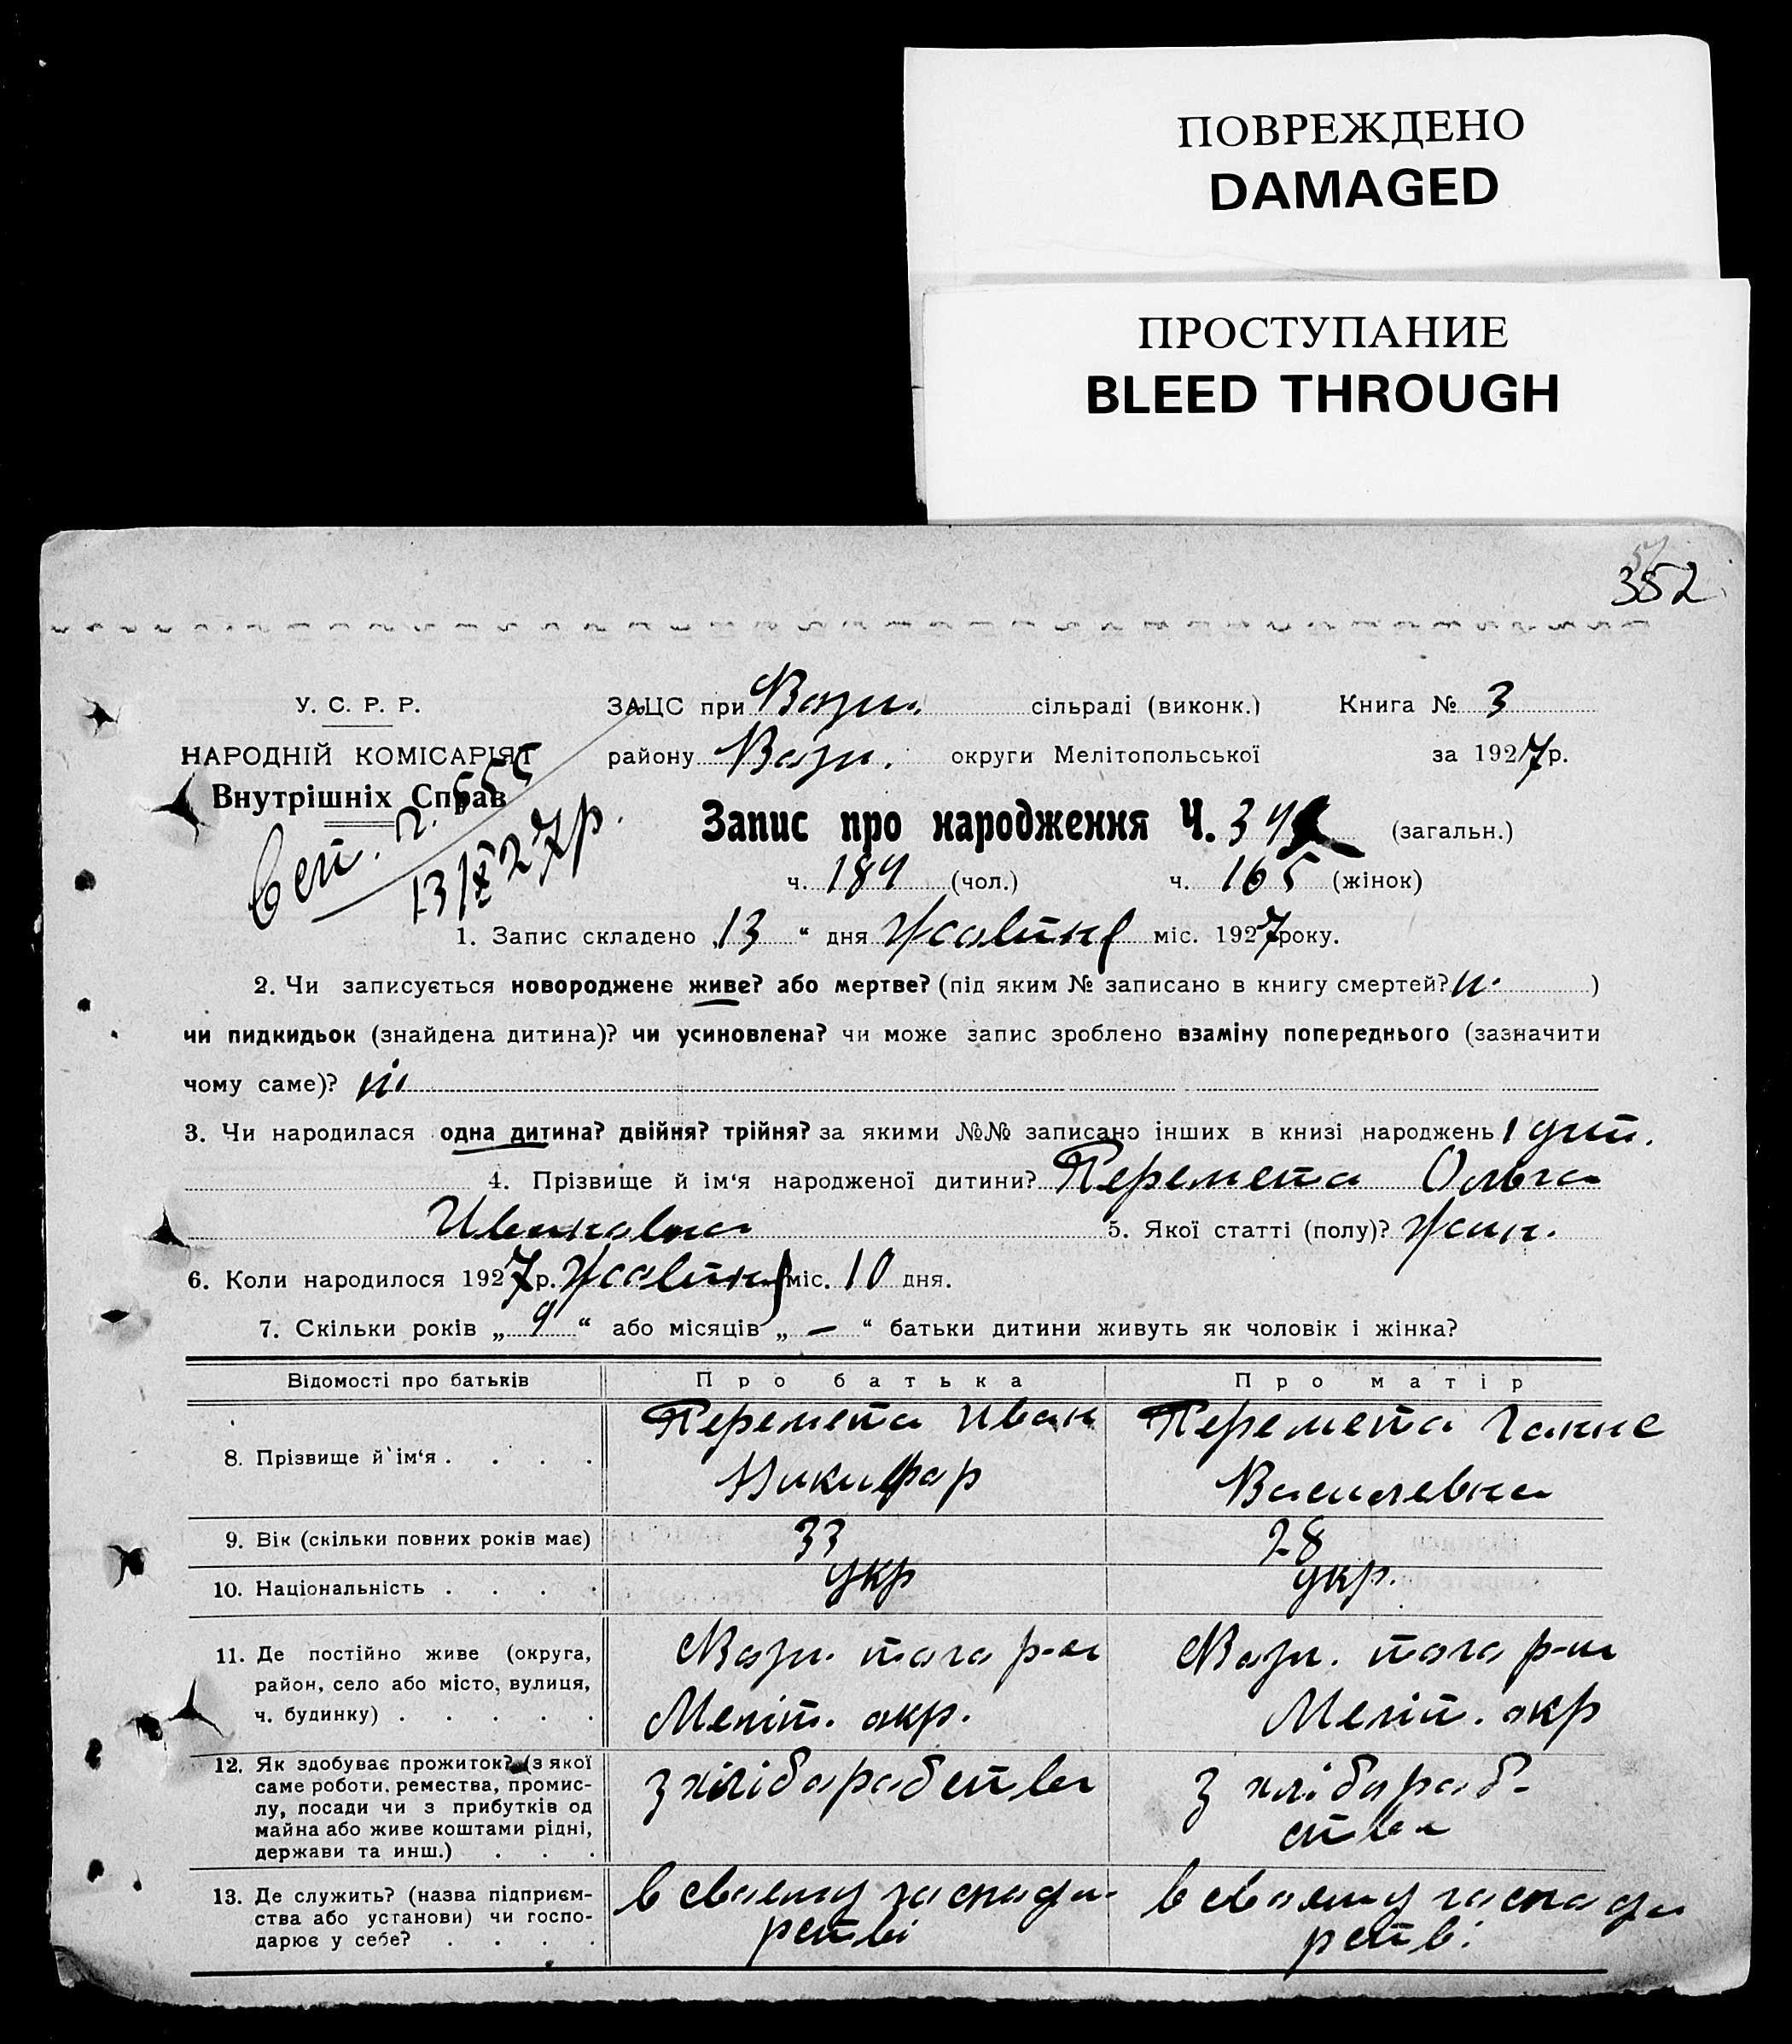 ПОВРЕЖДЕНО
DAMAGED
ПРОСТУПАНИЕ
BLEED THROUGH
352
У. С. Р. Р. ЗАЦС при Возн. сільраді (виконк.) Книга № 3
НАРОДНІЙ КОМІСАРІЯТ району Возн. округи Мелітопольської за 1927 р.
Внутрішніх Справ
13/X 27 р.
Запис про народження Ч. 34 (загальн.)
ч. 184 (чол.) ч. 165 (жінок)
1. Запис складено „13“ дня Жовтня міс. 1927 року.
2. Чи записується новороджене живе? або мертве? (під яким № записано в книгу смертей? н. )
чи пидкидьок (знайдена дитина)? чи усиновлена? чи може запис зроблено взаміну попереднього (зазначити
чому саме)? ні
3. Чи народилася одна дитина? двійня? трійня? за якими №№ записано інших в книзі народжень 1 дит.
4. Прізвище й ім‘я народженої дитини? Перемета Ольга
Ивановна 5. Якої статті (полу)? жін.
6. Коли народилося 1927 р. Жовтня міс. 10 дня.
7. Скільки років „ 9 “ або місяців „ — “ батьки дитини живуть як чоловік і жінка?
Відомості про батьків Про батька Про матір
8. Прізвище й ім‘я . . . . Перемета Иван Перемета Ганна
Никифор Василевна
9. Вік (скільки повних років має) 33 28
10. Національність . . . . укр укр.
11. Де постійно живе (округа, Возн. того р-ну Возн. того р-ну
район, село або місто, вулиця,
ч. будинку) . . . . . Меліт. окр. Меліт. окр
12. Як здобуває прожиток? (з якої з хліборобства з хлібороб-
саме роботи, ремества, промис-
лу, посади чи з прибутків од ства
майна або живе коштами рідні,
держави та инш.) . . .
13. Де служить? (назва підприєм- в своему господа- в своему господа
ства або установи) чи госпо- рстві рстві
дарює у себе? . . . .